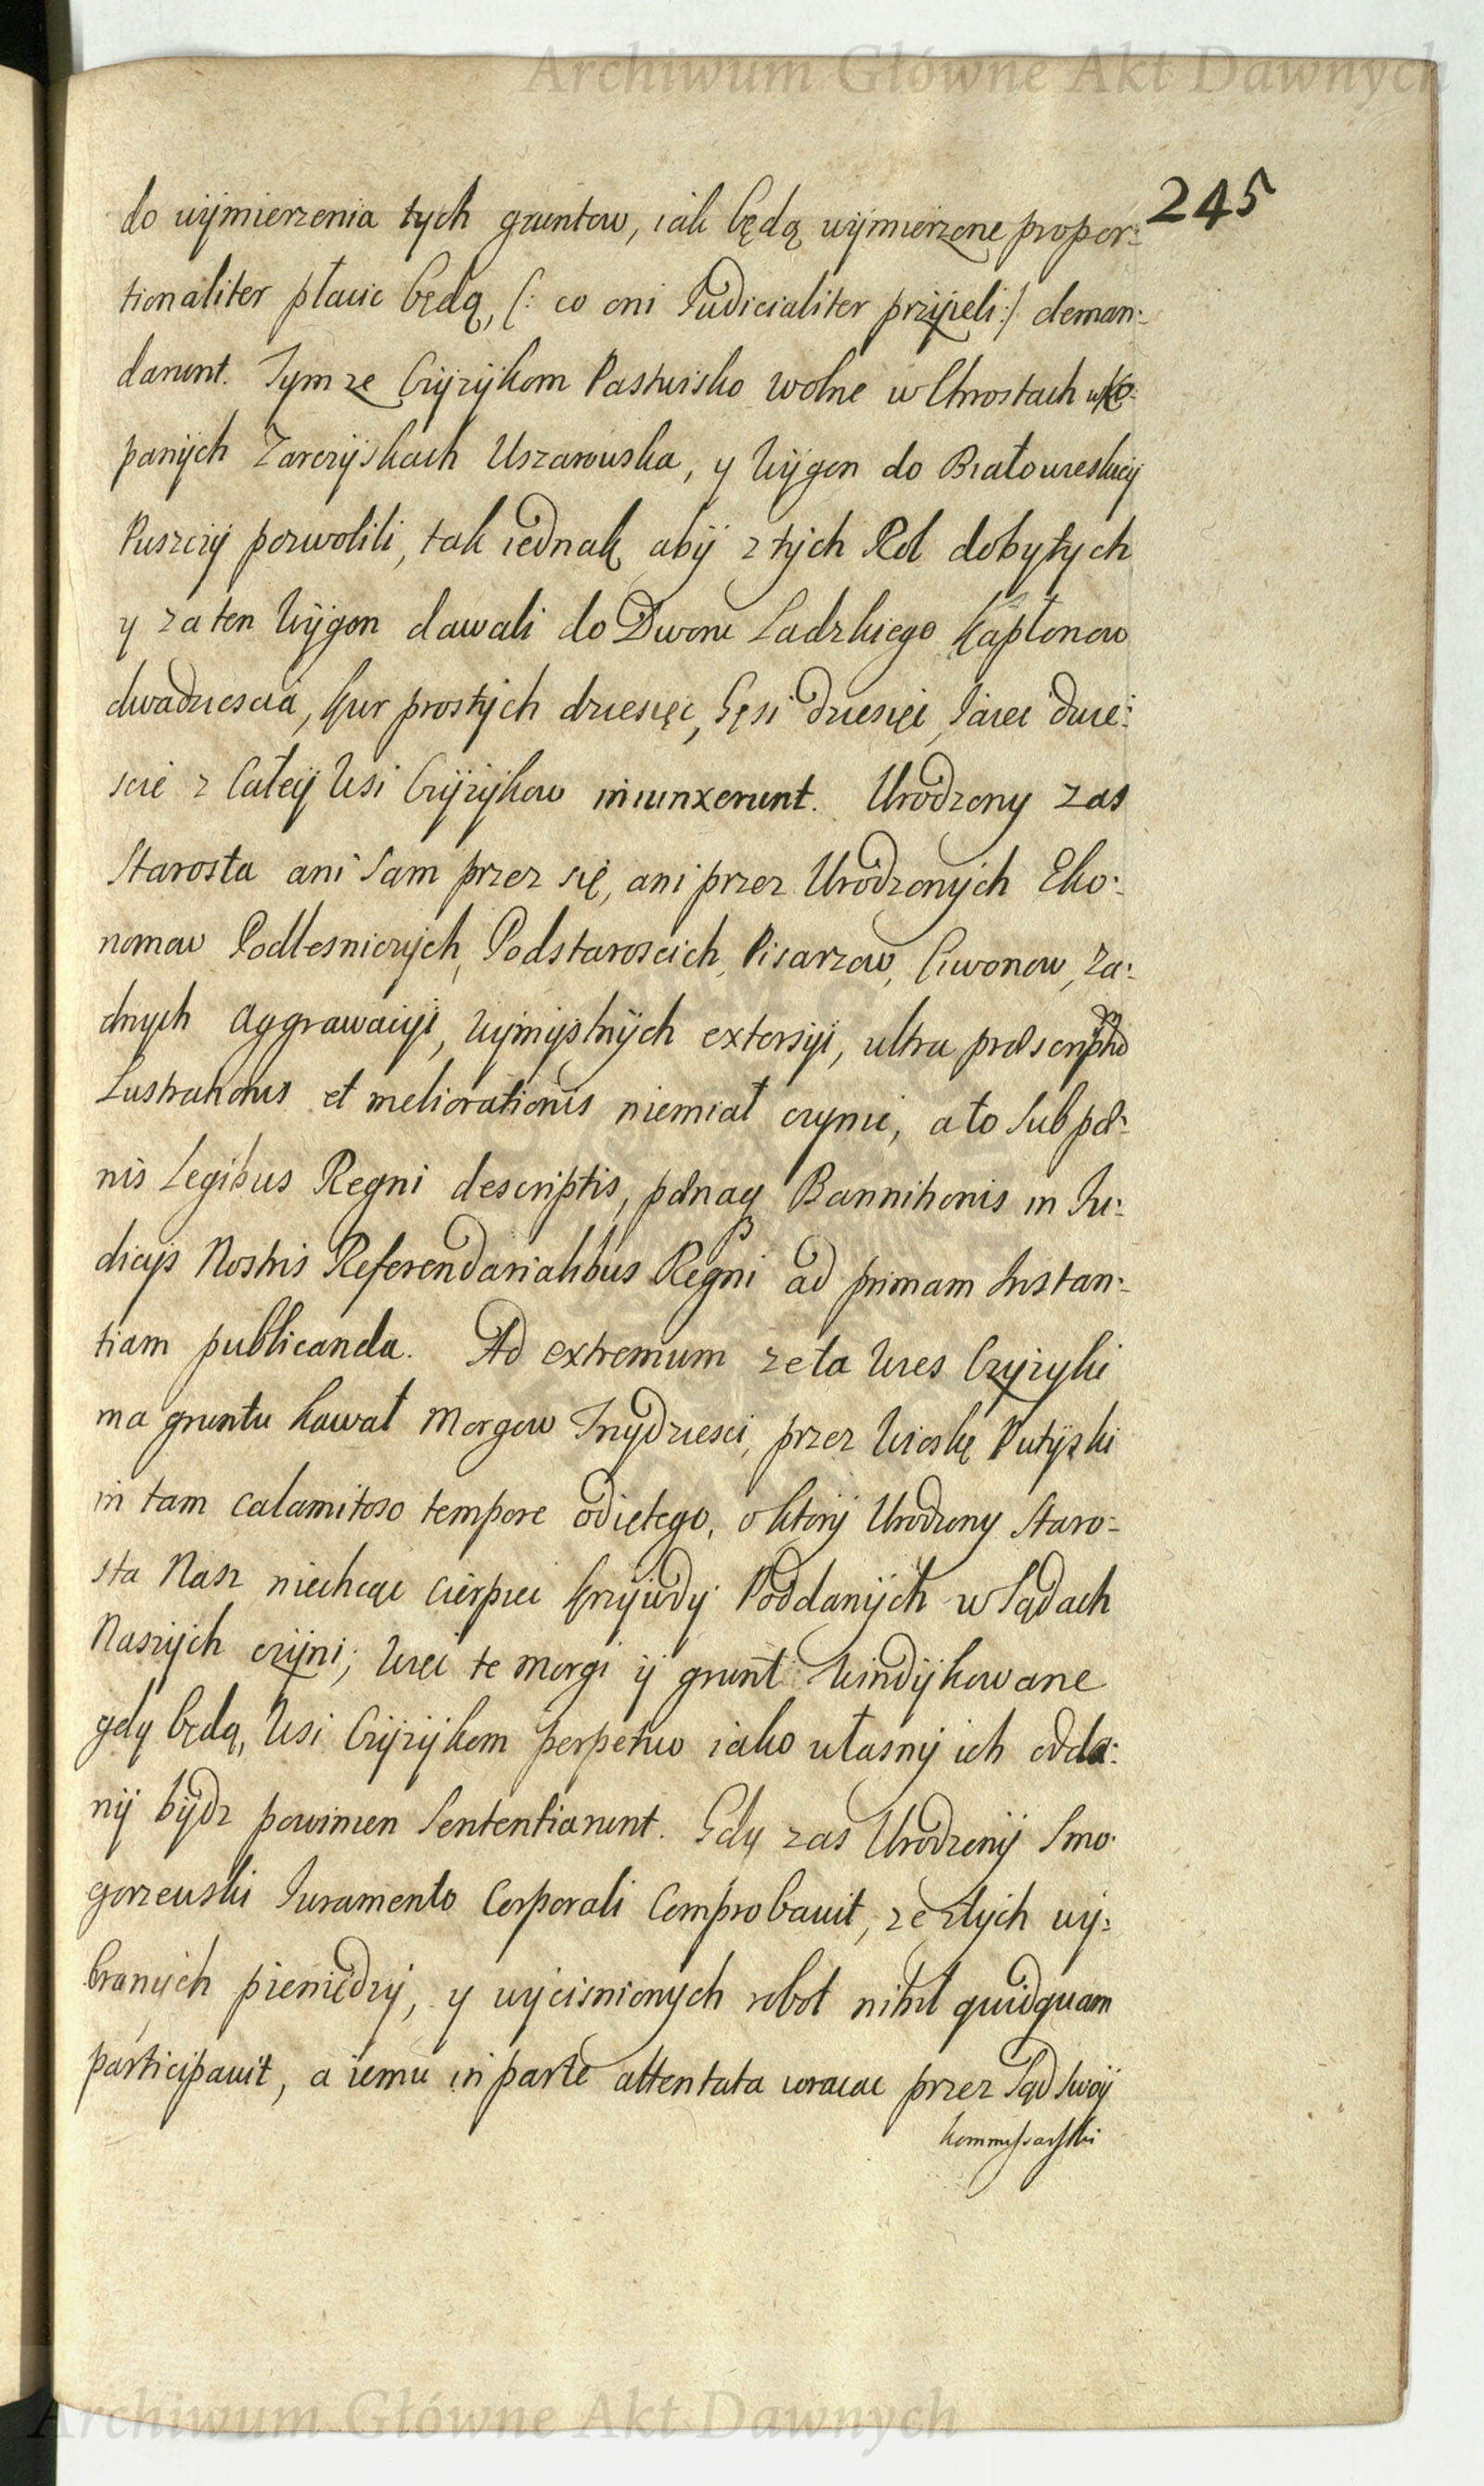 Archiwum Główne Akt Dawnych
245
do wÿmierzenia tych gruntow, iak będą wÿmierzone propor:
tionaliter płacic będą, (: co oni Judicialiter przÿieli :) deman:
darunt. Tymze Czÿzÿkom Pastwisko wolne w Chrostach
panÿch Zarczÿskach Uszarowska, y Wÿgon do Białowieskieÿ
Puszczÿ pozwolili, tak iednak, abÿ z tÿch Rol dobytych
y za ten Wÿgon dawali do Dworu Ladzkiego Kapłonow
dwadziescia, kur prostÿch dziesięc, Gęsi dziesięc, Jaiec dwie:
scie z Całeÿ Wsi Czÿzÿkow iniunxerunt. Urodzony zas
Starosta ani Sam przez się, ani przez Urodzonÿch Eko:
nomow Podlesniczÿch, Podstaroscich, Pisarzow, Ciwonow, za:
dnych Aggrawacÿi, Wÿmÿslnÿch extorsÿi, ultra præscriptũ
Lustrationis et meliorationis niemiał czynic, a to Sub pœ:
nis Legibus Regni descriptis, pœnaq Bannitionis in Iu:
dicÿs Nostris Referendarialibus Regni ad primam Instan:
tiam publicanda. Ad extremum ze ta Wies Czÿzyki
ma gruntu kawał Morgow Trzydziesci, przez Wioskę Putÿski
in tam calamitoso tempore odiętego, o ktorÿ Urodzony Staro:
sta Nasz niechcąc cierpiec krzÿwdÿ Poddanÿch w Sądach
Naszÿch czÿni; Więc te Morgi ÿ grunt windÿkowane
gdy będą, Wsi Czÿzÿkom perpetuo iako własnÿ ich odda:
nÿ bÿdz powinien Sententiarunt. Gdy zas Urodzonÿ Smo:
gorzewski Iuramento Corporali Comprobauit, ze ztÿch wÿ:
branÿch pieniędzÿ, y wÿcisnionych robot nihil quidquam
participauit, a iemu in parte attentata wracac przez Sąd Swóÿ
kommissarski
Archiwum Główne Akt Dawnych